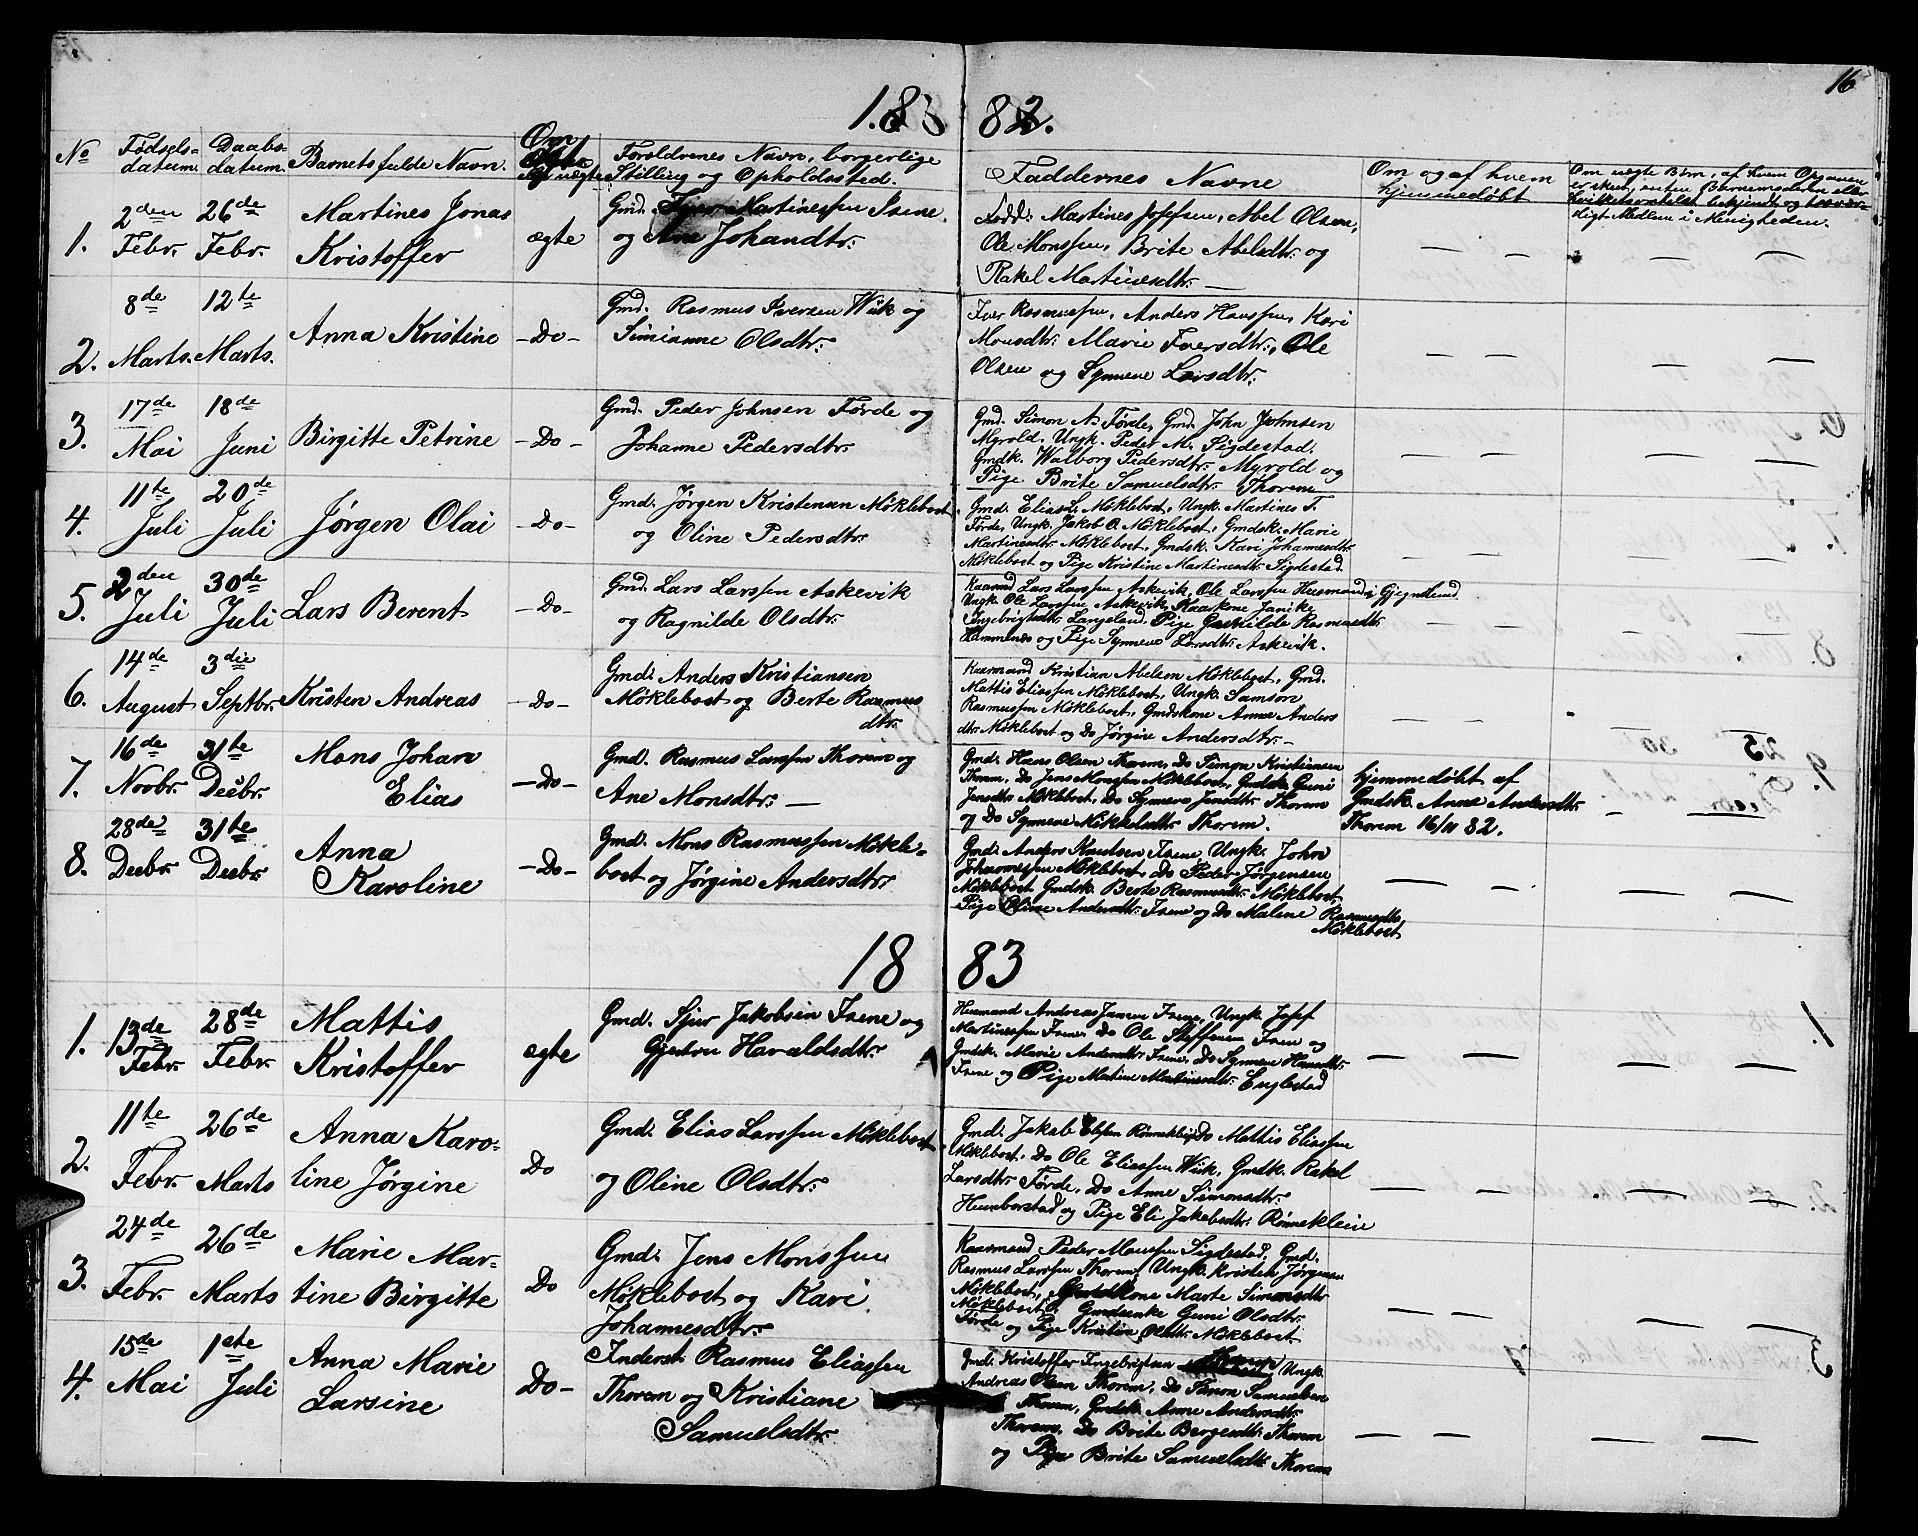 16
1882.
No Fødsels-datum. Daabs-datum. Barnets fulde Navn. Om Ægte eller uægte. Forældrenes Navn, borgerlige Stilling og Opholdssted. Faddernes Navne Om og af hvem hjemmedøbt
1. 2den Febr. 26de Febr. Martines Jonas Kristoffer ægte Gmd. Sjur Martinessen Isene og Ane Johandtr.
Fadd: Martines Josefsen, Abel Olsen,
Ole Monssen, Brite Abelsdtr. og
Rakel Martinesdtr. —
2. 8de Marts. 12te Marts. Anna Kristine -Do- Gmd. Rasmus Iversen Wiik og Simianne Olsdtr.
Iver Rasmussen, Anders Hanssen, Kari
Monsdtr. Marie Iversdtr., Ole
Olsen og Synneve Larsdtr.
3. 17de Mai 18de Juni Birgitte Petrine -Do- Gmd. Peder Johnsen Førde og Johanne Pedersdtr.
Gmd. Simon N. Førde, Gmd. John Johnsen
Myrold. Ungk. Peder M. Sigdestad.
Gmdk. Walborg Pedersdtr. Myrold og
Pige Brite Samuelsdtr. Thorem
4. 11te Juli 20de Juli Jørgen Olai -Do- Gmd. Jørgen Kristensen Møklebost og Oline Pedersdtr.
Gmd. Elias L. Møklebost, Ungk. Martines T.
Førde, Ungk. Jakob O. Møklebost, Gmdsk. Marie
Martinesdtr. Møklebost, Gmdsk. Kari Johannesdtr.
Møklebost og Pige Kristine Martinesdtr. Sigdestad.
5. 2den Juli 30de Juli Lars Berent -Do- Gmd. Lars Larssen Askevik og Ragnilde Olsdtr.
Kaarmd Lars Larssen Askevik, Ole Larssen Husmand i Gjegnalund
Ungk. Ole Larssen Askevik, Kaarkone Janike
Ingebrigtsdtr. Langeland. Pige Gunhilde Rasmusdtr.
Hammenes og Pige Synneve Larsdtr. Askevik.
6. 14de August 3die Septbr. Kristen Andreas -Do- Gmd. Anders Kristiansen Møklebost og Berte Rasmusdtr.
Kaarmand Kristian Abelsen Møklebost, Gmd.
Mattis Eliassen Møklebost, Ungk. Samson
Rasmussen Møklebost, Gmdskone Anna Anders
dtr. Møklebost og Do Jørgine Andersdtr. —
7. 16de Novbr. 31te Decbr. Mons Johan Elias -Do- Gmd. Rasmus Larssen Thorem og Ane Monsdtr. —
Gmd. Hans Olsen Thorem, Do Simon Kristiansen
Thorem, Do Jens Monssen Møklebost, Gmdsk. Guni
Jensdtr. Møklebost, Do Synneve Jensdtr. Thorem
og Do Synneve Mikkelsdtr. Thorem.
hjemmedøbt af
Gmdsk. Anne Andersdtr.
Thorem 16/11 82.
8. 28de Decbr. 31te Decbr. Anna Karoline -Do- Gmd. Mons Rasmussen Møklebost og Jørgine Andersdtr.
Gmd. Anders Knutsen Isene, Ungk. John
Johannessen Møklebost, Do Peder Jørgensen
Møklebost Gmdsk. Berte Rasmusdtr. Møklebost
Pige Oline Andersdtr. Isene og Do Malene Rasmusdtr.
Møklebost
1883
1. 13de Febr. 28de Febr. Mattis Kristoffer ægte Gmd. Sjur Jakobsen Isene og Gjertru Haraldsdtr.
Husmand Andreas Jansen Isene, Ungk. Josef
Martinessen Isene, Do Ole Steffensen Isene og
Gmdsk. Marie Andersdtr. Isene, Do Synneve Hansdtr.
Isene og Pige Martine Martinesdtr. Englestad
2. 11te Febr. 26de Marts Anna Karoline Jørgine Do Gmd. Elias Larssen Møklebost og Oline Olsdtr.
Gmd. Jakob Elissen Rønneklein, Do Mattis Eliassen
Møklebost. Do Ole Eliassen Wiik, Gmdk. Rakel
Larsdtr. Førde, Do Anne Simonsdtr.
Humborstad og Pige Eli Jakobsdtr. Rønneklein
3. 24de Febr. 26de Marts Marie Martine Birgitte Do Gmd. Jens Monssen Møklebost og Kari Johannesdtr.
Kaarmand Peder Monssen Sigdestad, Gmd.
Rasmus Larssen Thorem, Ungk. Kristen Jørgensen
Møklebost, Gmdkone Marte Simonsdtr
Møklebost. Gmdsenke Guni Olsdtr.
Førde og Pige Kristin Olsdtr. Møklebost.
4. 15de Mai 1ste Juli Anna Marie Larsine Do- Inderst Rasmus Eliassen Thorem og Kristiane Samuelsdtr.
Gmd. Kristoffer Ingebrigtsen Thorem Ungk.
Andreas Olsen Thorem, Do Simon Samuelsen
Thorem, Gmdsk. Anne Andersdtr.
Thorem, Do Brite Bergesdtr. Thorem
og Pige Brite Samuelsdtr. Thorem